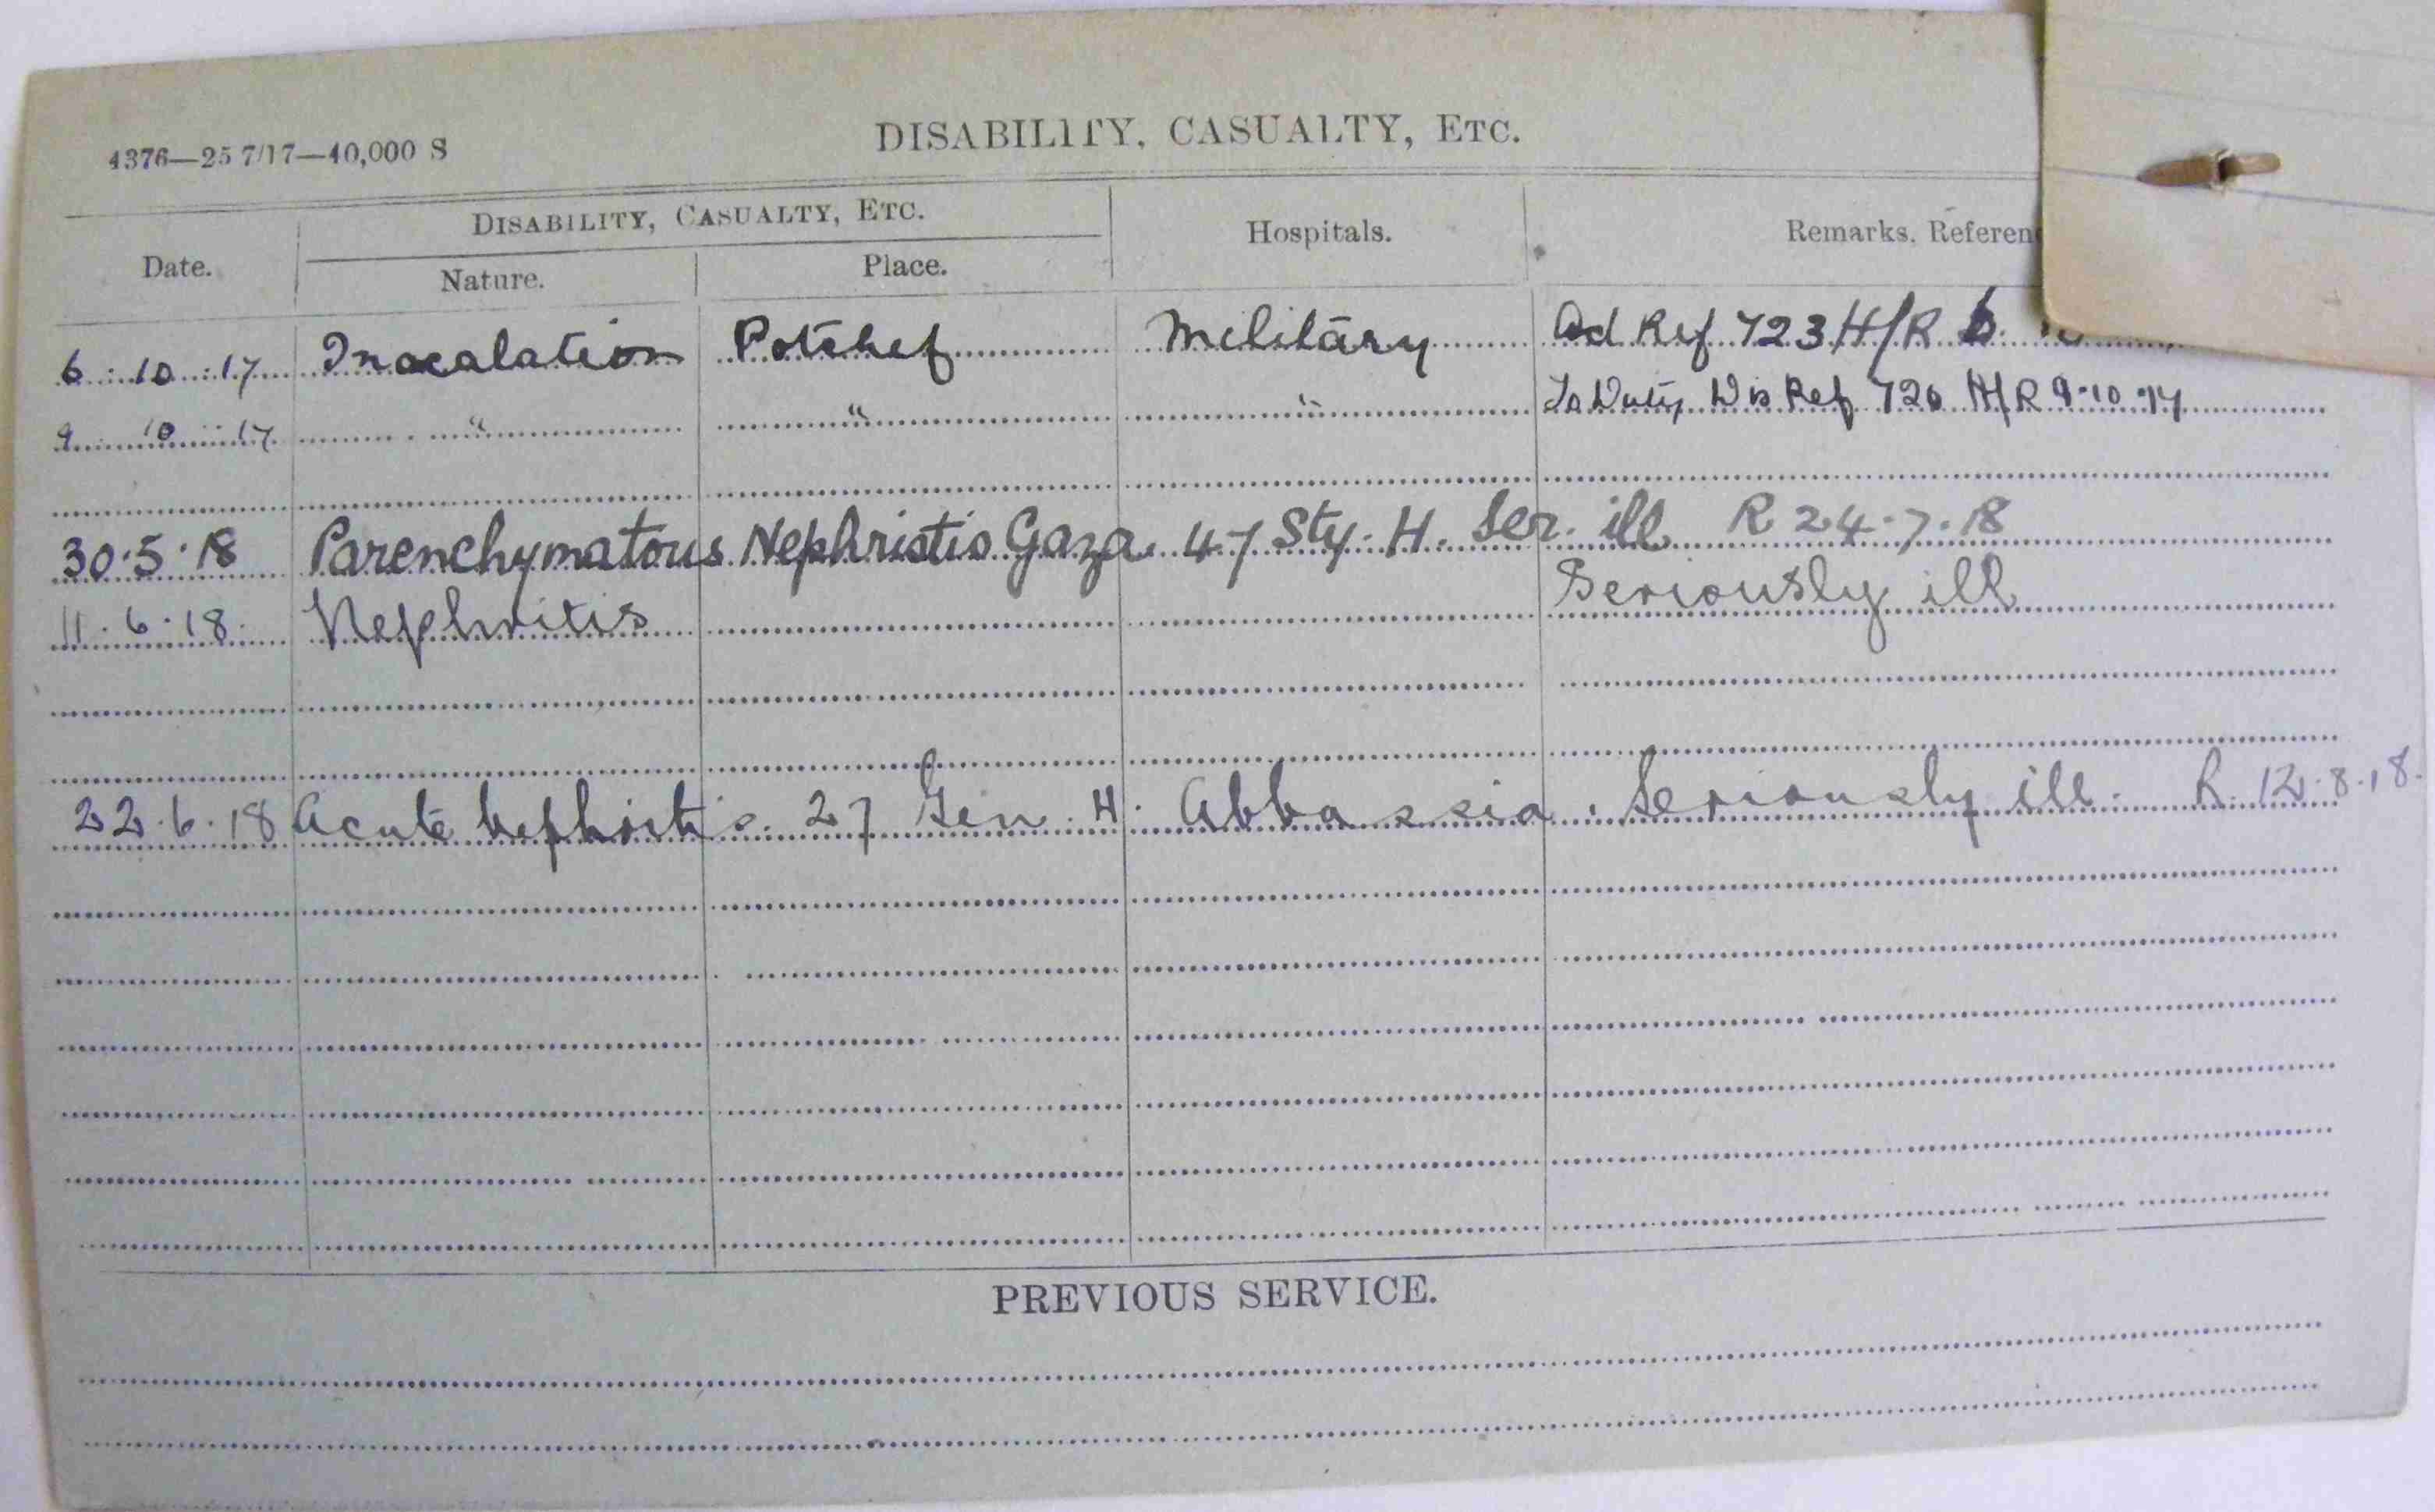 4376—25 7/17—40,000 S
DISABILITY, CASUALTY, ETC.
DISABILITY, CASUALTY, ETC.
Date.
Nature.
Place.
Hospitals.
Remarks, Referen
6 10 17 Inocalation Potchef Military Ad Ref 723 H/R 6.
9 10 17 " " " To Duty Dis Ref 726 H/R 9.10.17
30.5.18 Parenchymatous Nephristis Gaza. 47 Sty. H. Ser. ill R 24.7.18
11.6.18. Nephritis Seriously ill
22.6.18 Acute Nephritis. 27 Gen. H. Abbassia. Seriously ill. R. 12.8.18.
PREVIOUS SERVICE.